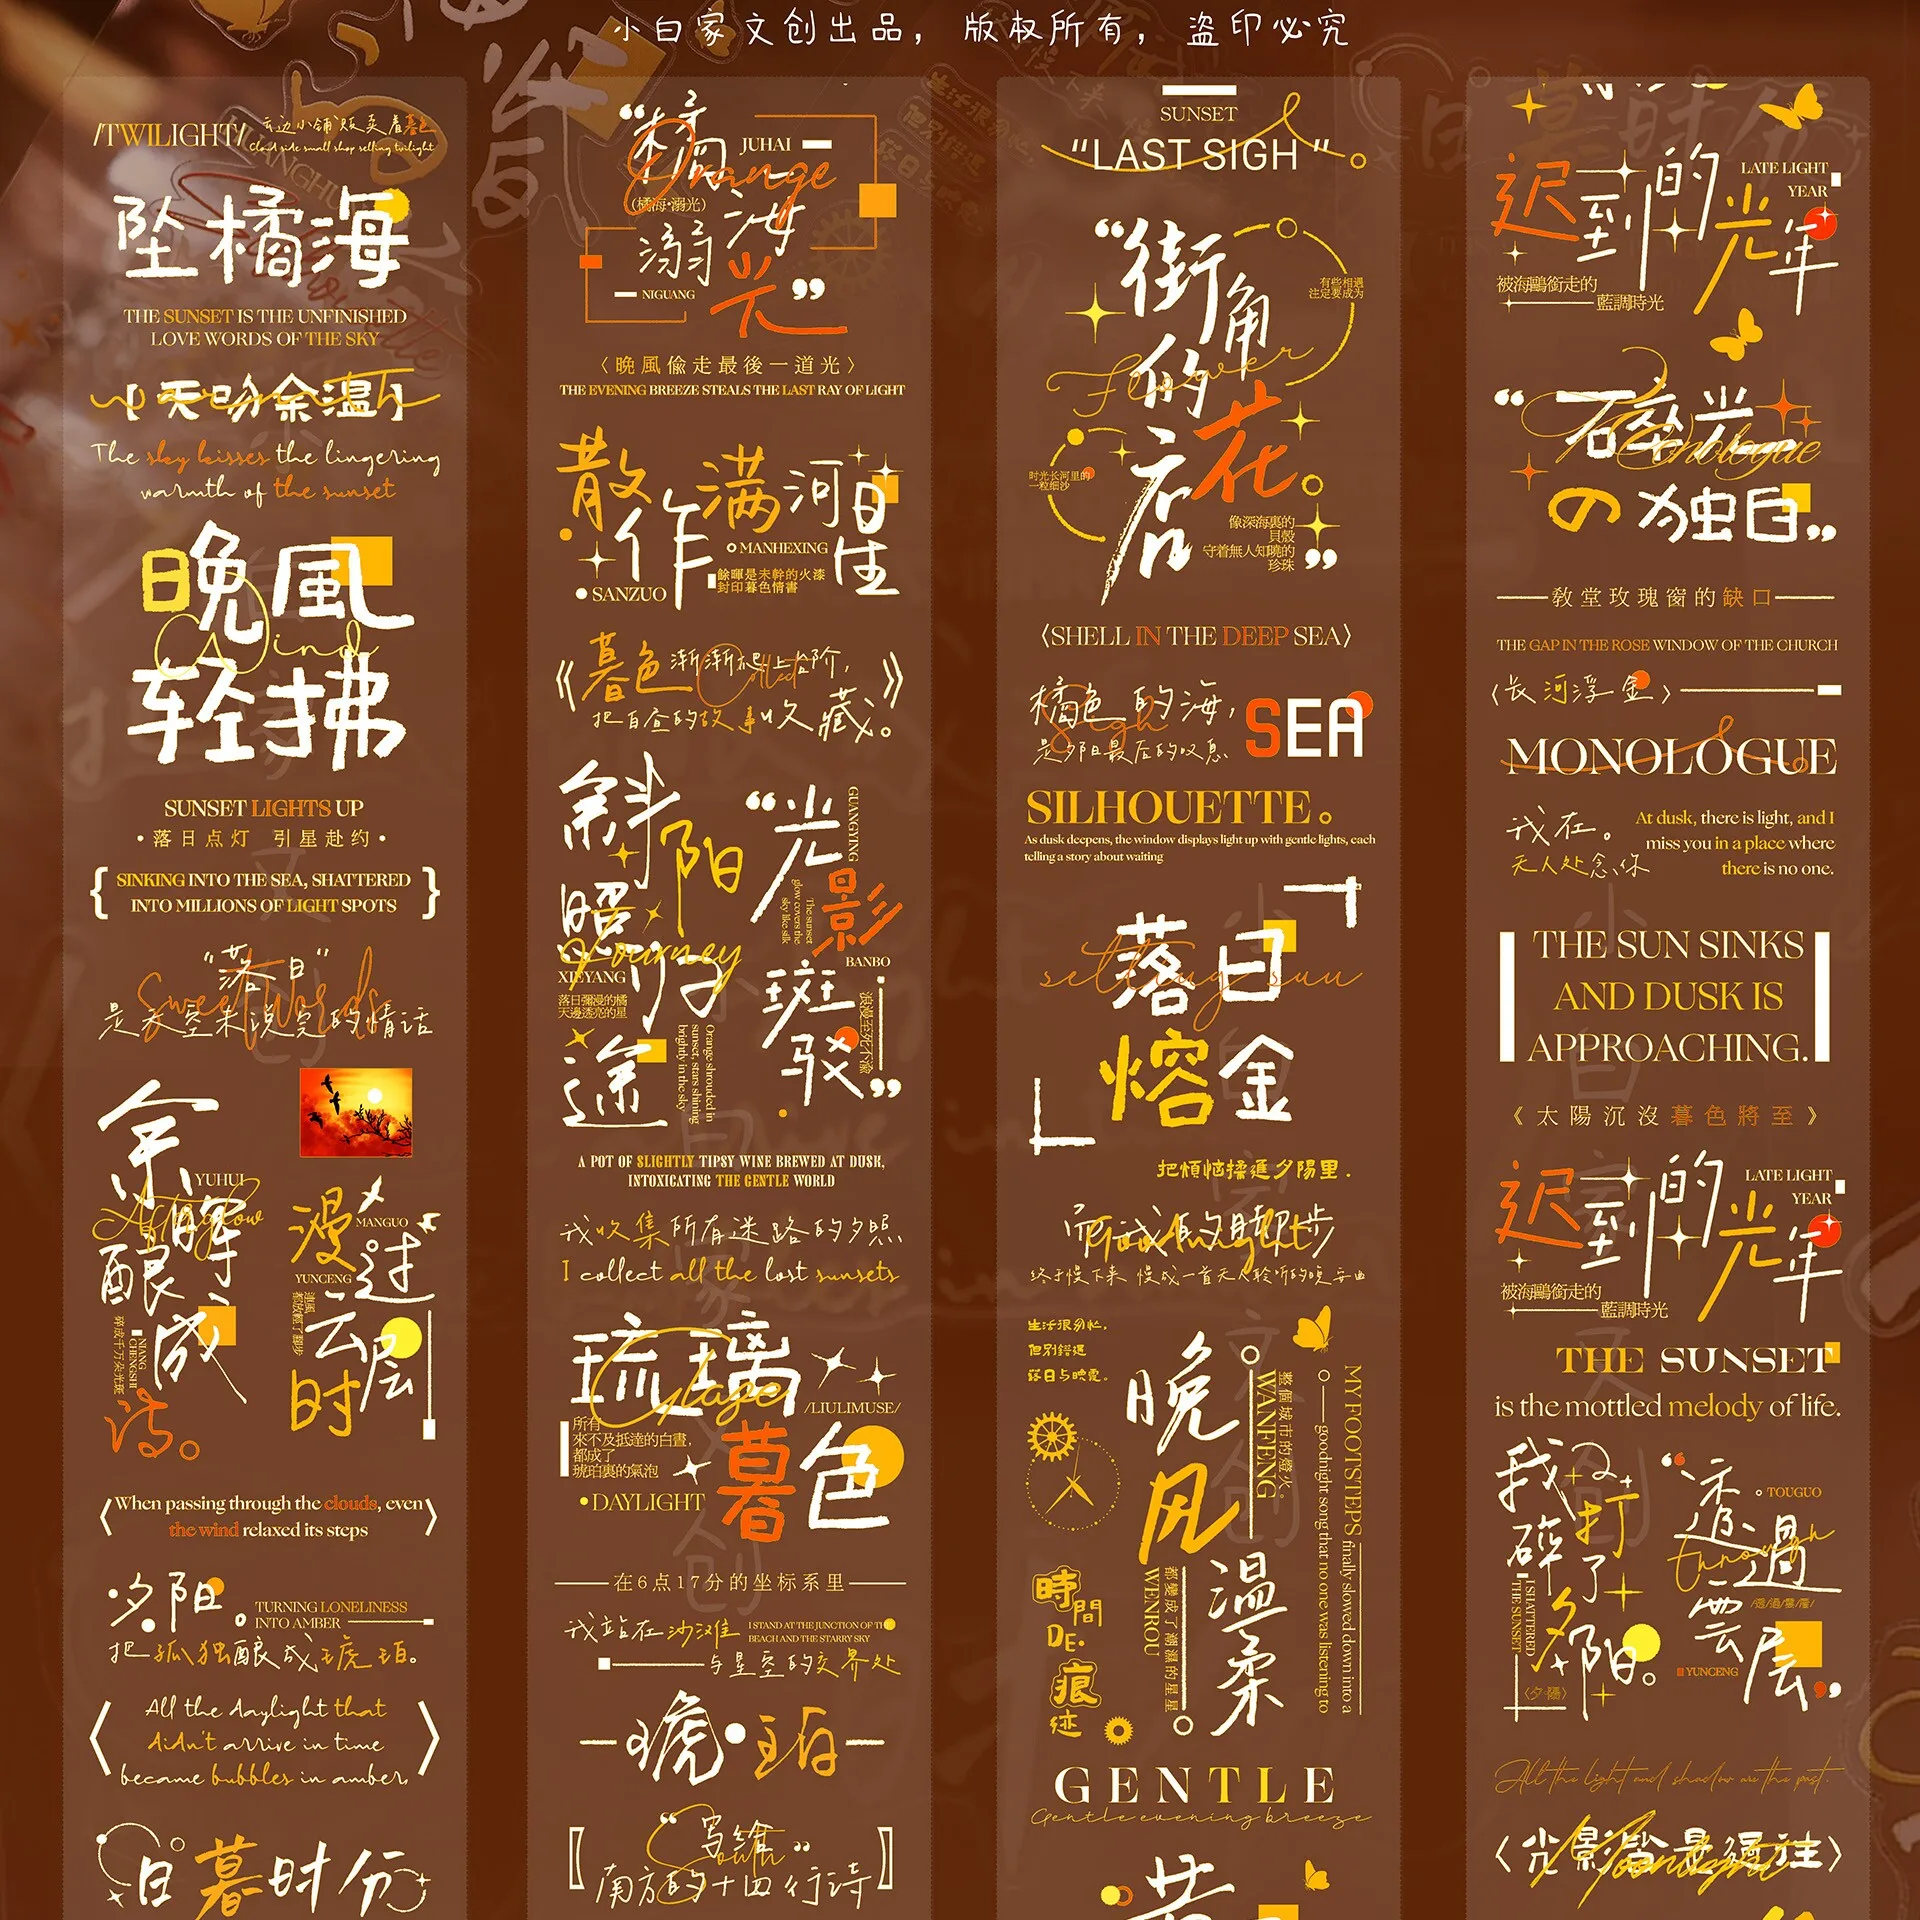 小白家文创出品， 版权所有， 盗印必究
/TWILIGHT/
云边小铺贩卖着暮色
Cloud side small shop selling twilight
坠橘海
THE SUNSET IS THE UNFINISHED
LOVE WORDS OF THE SKY
【天吻余温】
warmth
The sky kisses the lingering
warmth of the sunset
晚風
Wind
轻拂
SUNSET LIGHTS UP
·落日点灯 引星赴约·
{SINKING INTO THE SEA, SHATTERED
INTO MILLIONS OF LIGHT SPOTS}
“落日”
Sweet Words
是天空未说完的情话
余晖
YUHUI
Afterglow
酿成
NIANG
CHENGSHI
碎成千万朵光斑
诗。
漫过
MANGUO
YUNCENG
連風
都放輕了腳步
云层
时
〈When passing through the clouds, even
the wind relaxed its steps〉
夕阳。
TURNING LONELINESS
INTO AMBER
把孤独酿成琥珀。
〈All the daylight that
didn't arrive in time
became bubbles in amber,〉
日暮时分
“橘海
JUHAI
Orange
(橘海·溺光)
溺光”
NIGUANG
〈晚風偷走最後一道光〉
THE EVENING BREEZE STEALS THE LAST RAY OF LIGHT
散作满河星
MANHEXING
SANZUO
餘暉是未幹的火漆
封印暮色情書
《暮色渐渐爬上台阶，
Collect
把白昼的故事收藏。》
斜阳
照
Journey
XIEYANG
归途
落日彌漫的橘
天邊透亮的星
Orange shrouded in
sunset, stars shining
brightly in the sky
“光影
GUANGYING
The sunset
glow covers the
sky like silk
BANBO
斑驳”
浪漫至死不渝
A POT OF SLIGHTLY TIPSY WINE BREWED AT DUSK,
INTOXICATING THE GENTLE WORLD
我收集所有迷路的夕照
I collect all the lost sunsets
琉璃
Glaze
/LIULIMUSE/
所有
來不及抵達的白晝，
都成了
琥珀裏的氣泡
暮色
DAYLIGHT
在6点17分的坐标系里
我站在沙滩
I STAND AT THE JUNCTION OF THE
BEACH AND THE STARRY SKY
与星空的交界处
琥珀
“写给”
South
南方的十四行诗
SUNSET
“LAST SIGH ”
“街角
有些相遇
注定要成为
的
Flower
花店”
时光长河里的
一粒细沙
像深海裏的
貝殼
守着無人知曉的
珍珠
〈SHELL IN THE DEEP SEA〉
橘色的海，
Sigh
是夕阳最后的叹息
SEA
SILHOUETTE。
As dusk deepens, the window displays light up with gentle lights, each
telling a story about waiting
落日
setting sun
熔金
把煩惱揉進夕陽里．
而我的脚步
Goodnight
终于慢下来 慢成一首无人聆听的晚安曲
生活很匆忙，
但别錯過
落日与晚霞。
晚风
WANFENG
整個城市的燈火。
MY FOOTSTEPS finally slowed down into a
goodnight song that no one was listening to
温柔
WENROU
都變成了潮濕的星星
時間
DE·
痕迹
GENTLE
Gentle evening breeze
迟到的光年
LATE LIGHT
YEAR
被海鷗銜走的
藍調時光
“碎光
Monologue
の独白”
敎堂玫瑰窗的缺口
THE GAP IN THE ROSE WINDOW OF THE CHURCH
〈长河浮金〉
MONOLOGUE
我在。
无人处念你
At dusk, there is light, and I
miss you in a place where
there is no one.
THE SUN SINKS
AND DUSK IS
APPROACHING.
《太陽沉沒暮色將至》
迟到的光年
LATE LIGHT
YEAR
被海鷗銜走的
藍調時光
THE SUNSET
is the mottled melody of life.
我打
碎了
夕阳。
I SHATTERED
THE SUNSET
〈夕陽〉
“透過
TOUGUO
Through
/透/過/雲/層/
雲层”
YUNCENG
All the light and shadow are the past.
〈光影皆是过往〉